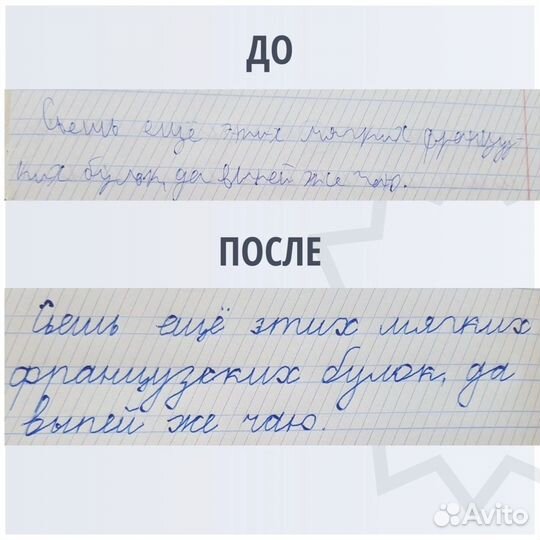 ДО
Съешь ещё этих мягких францу-
ких булок, да выпей же чаю.
ПОСЛЕ
Съешь ещё этих мягких
французских булок, да
выпей же чаю.
Avito